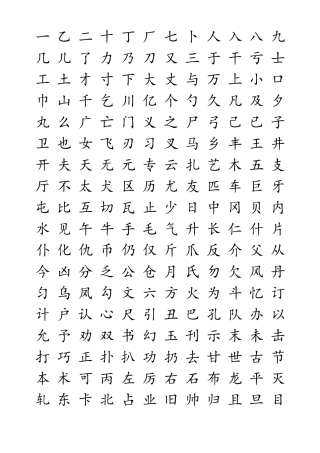 一 乙 二 十 丁 厂 七 卜 人 入 八 九
几 儿 了 力 乃 刀 又 三 于 干 亏 士
工 土 才 寸 下 大 丈 与 万 上 小 口
巾 山 千 乞 川 亿 个 勺 久 凡 及 夕
丸 么 广 亡 门 义 之 尸 弓 己 已 子
卫 也 女 飞 刃 习 叉 马 乡 丰 王 井
开 夫 天 无 元 专 云 扎 艺 木 五 支
厅 不 太 犬 区 历 尤 友 匹 车 巨 牙
屯 比 互 切 瓦 止 少 日 中 冈 贝 内
水 见 午 牛 手 毛 气 升 长 仁 什 片
仆 化 仇 币 仍 仅 斤 爪 反 介 父 从
今 凶 分 乏 公 仓 月 氏 勿 欠 风 丹
匀 乌 凤 勾 文 六 方 火 为 斗 忆 订
计 户 认 心 尺 引 丑 巴 孔 队 办 以
允 予 劝 双 书 幻 玉 刊 示 末 未 击
打 巧 正 扑 扒 功 扔 去 甘 世 古 节
本 术 可 丙 左 厉 右 石 布 龙 平 灭
轧 东 卡 北 占 业 旧 帅 归 且 旦 目